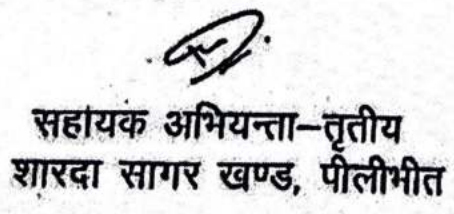 सहायक अभियन्ता–तृतीय
शारदा सागर खण्ड, पीलीभीत